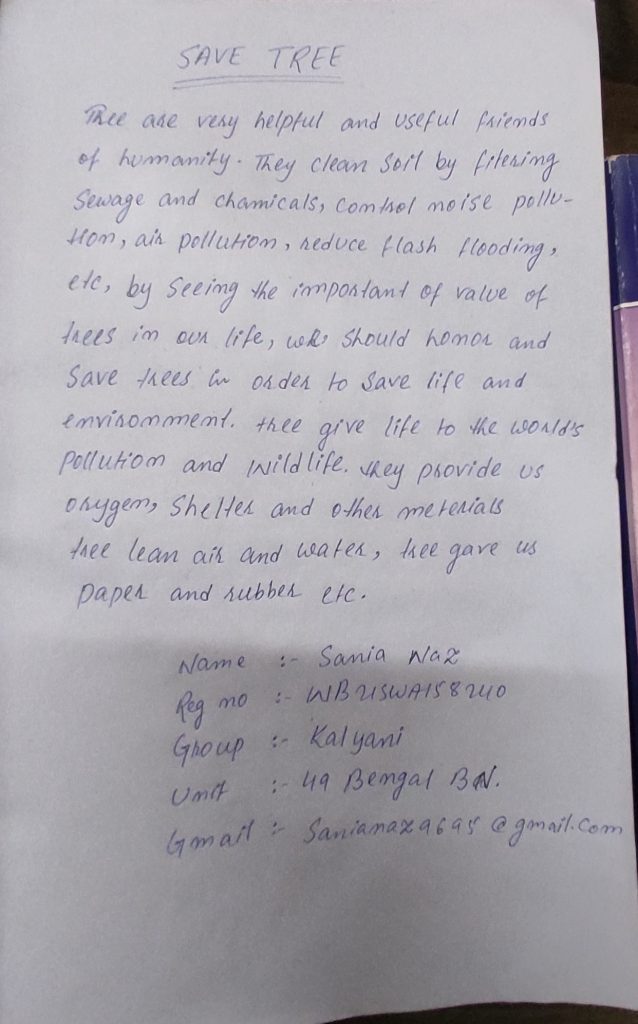 SAVE TREE
Tree are very helpful and useful friends
of humanity. They clean soil by fitering
Sewage and chamicals, control noise pollu-
tion, air pollution, reduce flash flooding,
etc, by seeing the important of value of
trees in our life, we should honor and
Save trees in order to save life and
environmment. thee give life to the world's
pollution and wildlife. they provide us
oxygen, Shelter and other meterials
tree lean air and water, tree gave us
paper and rubber etc.
Name :- Sania Naz
Reg no :- WB21SWA158240
Group :- Kalyani
Unit :- 49 Bengal BN.
Gmail :- Sanianaz9695@gmail.com